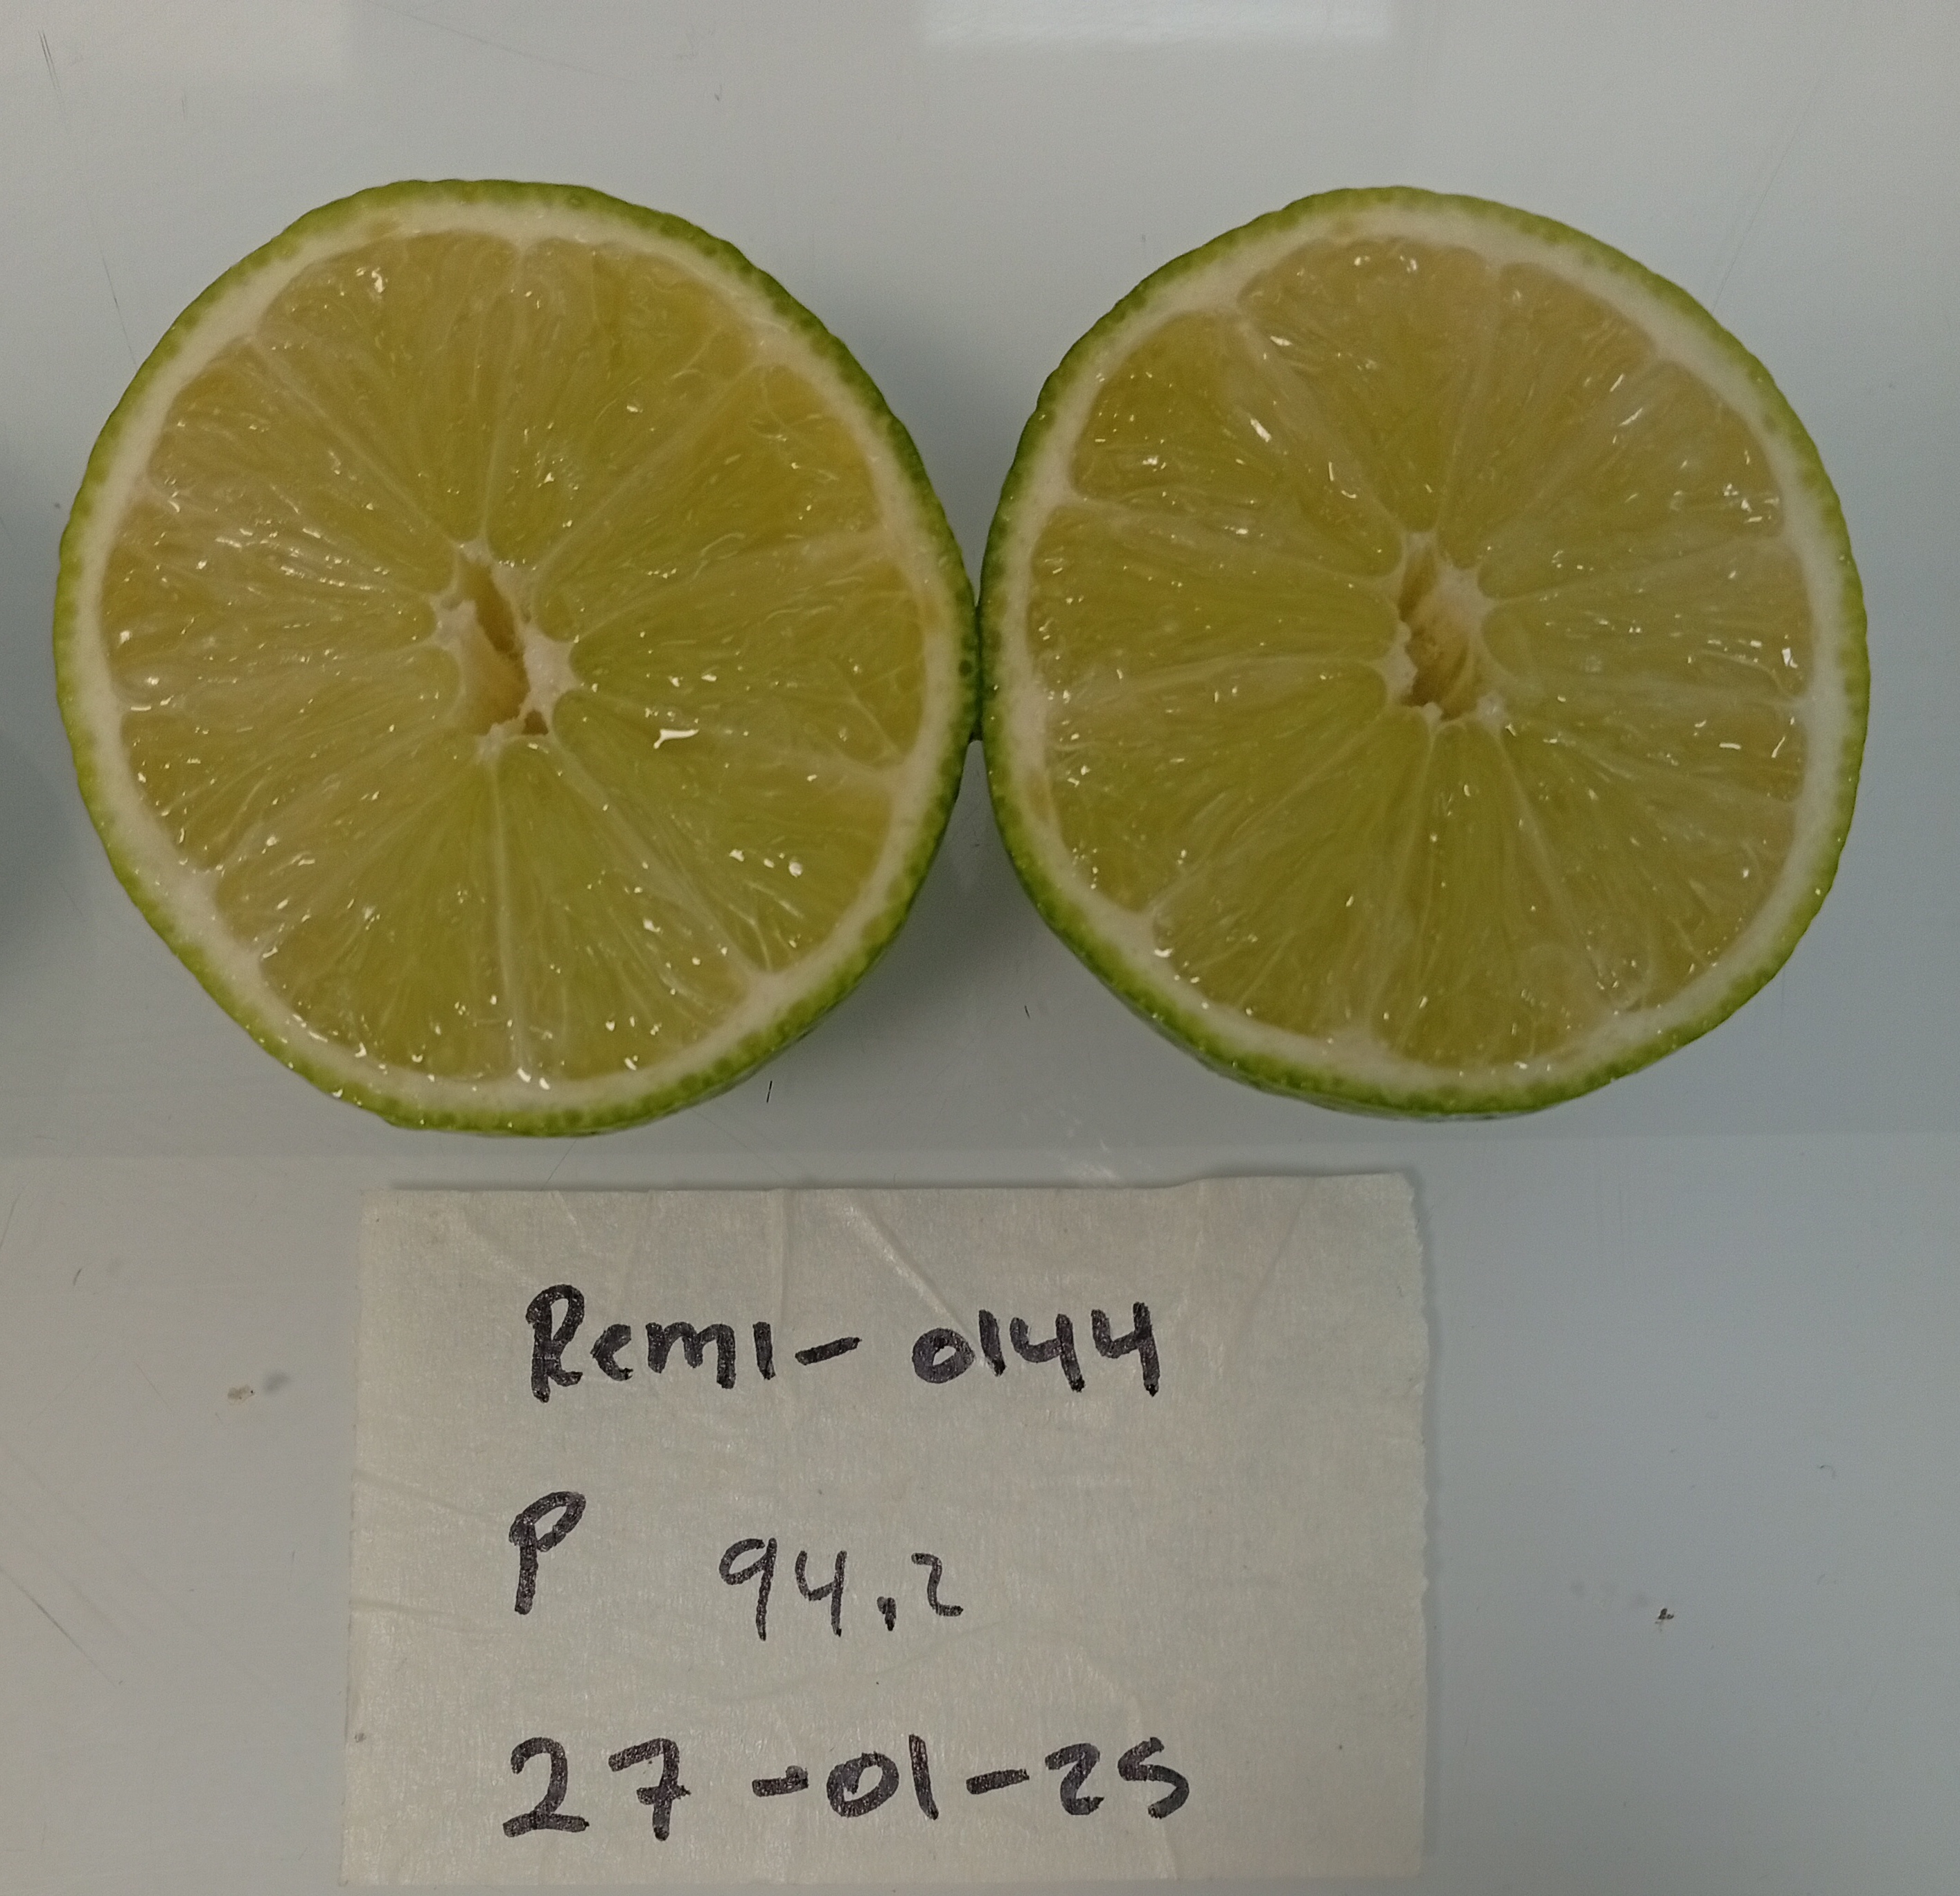 Remi- 0144
P 94.2
27-01-25